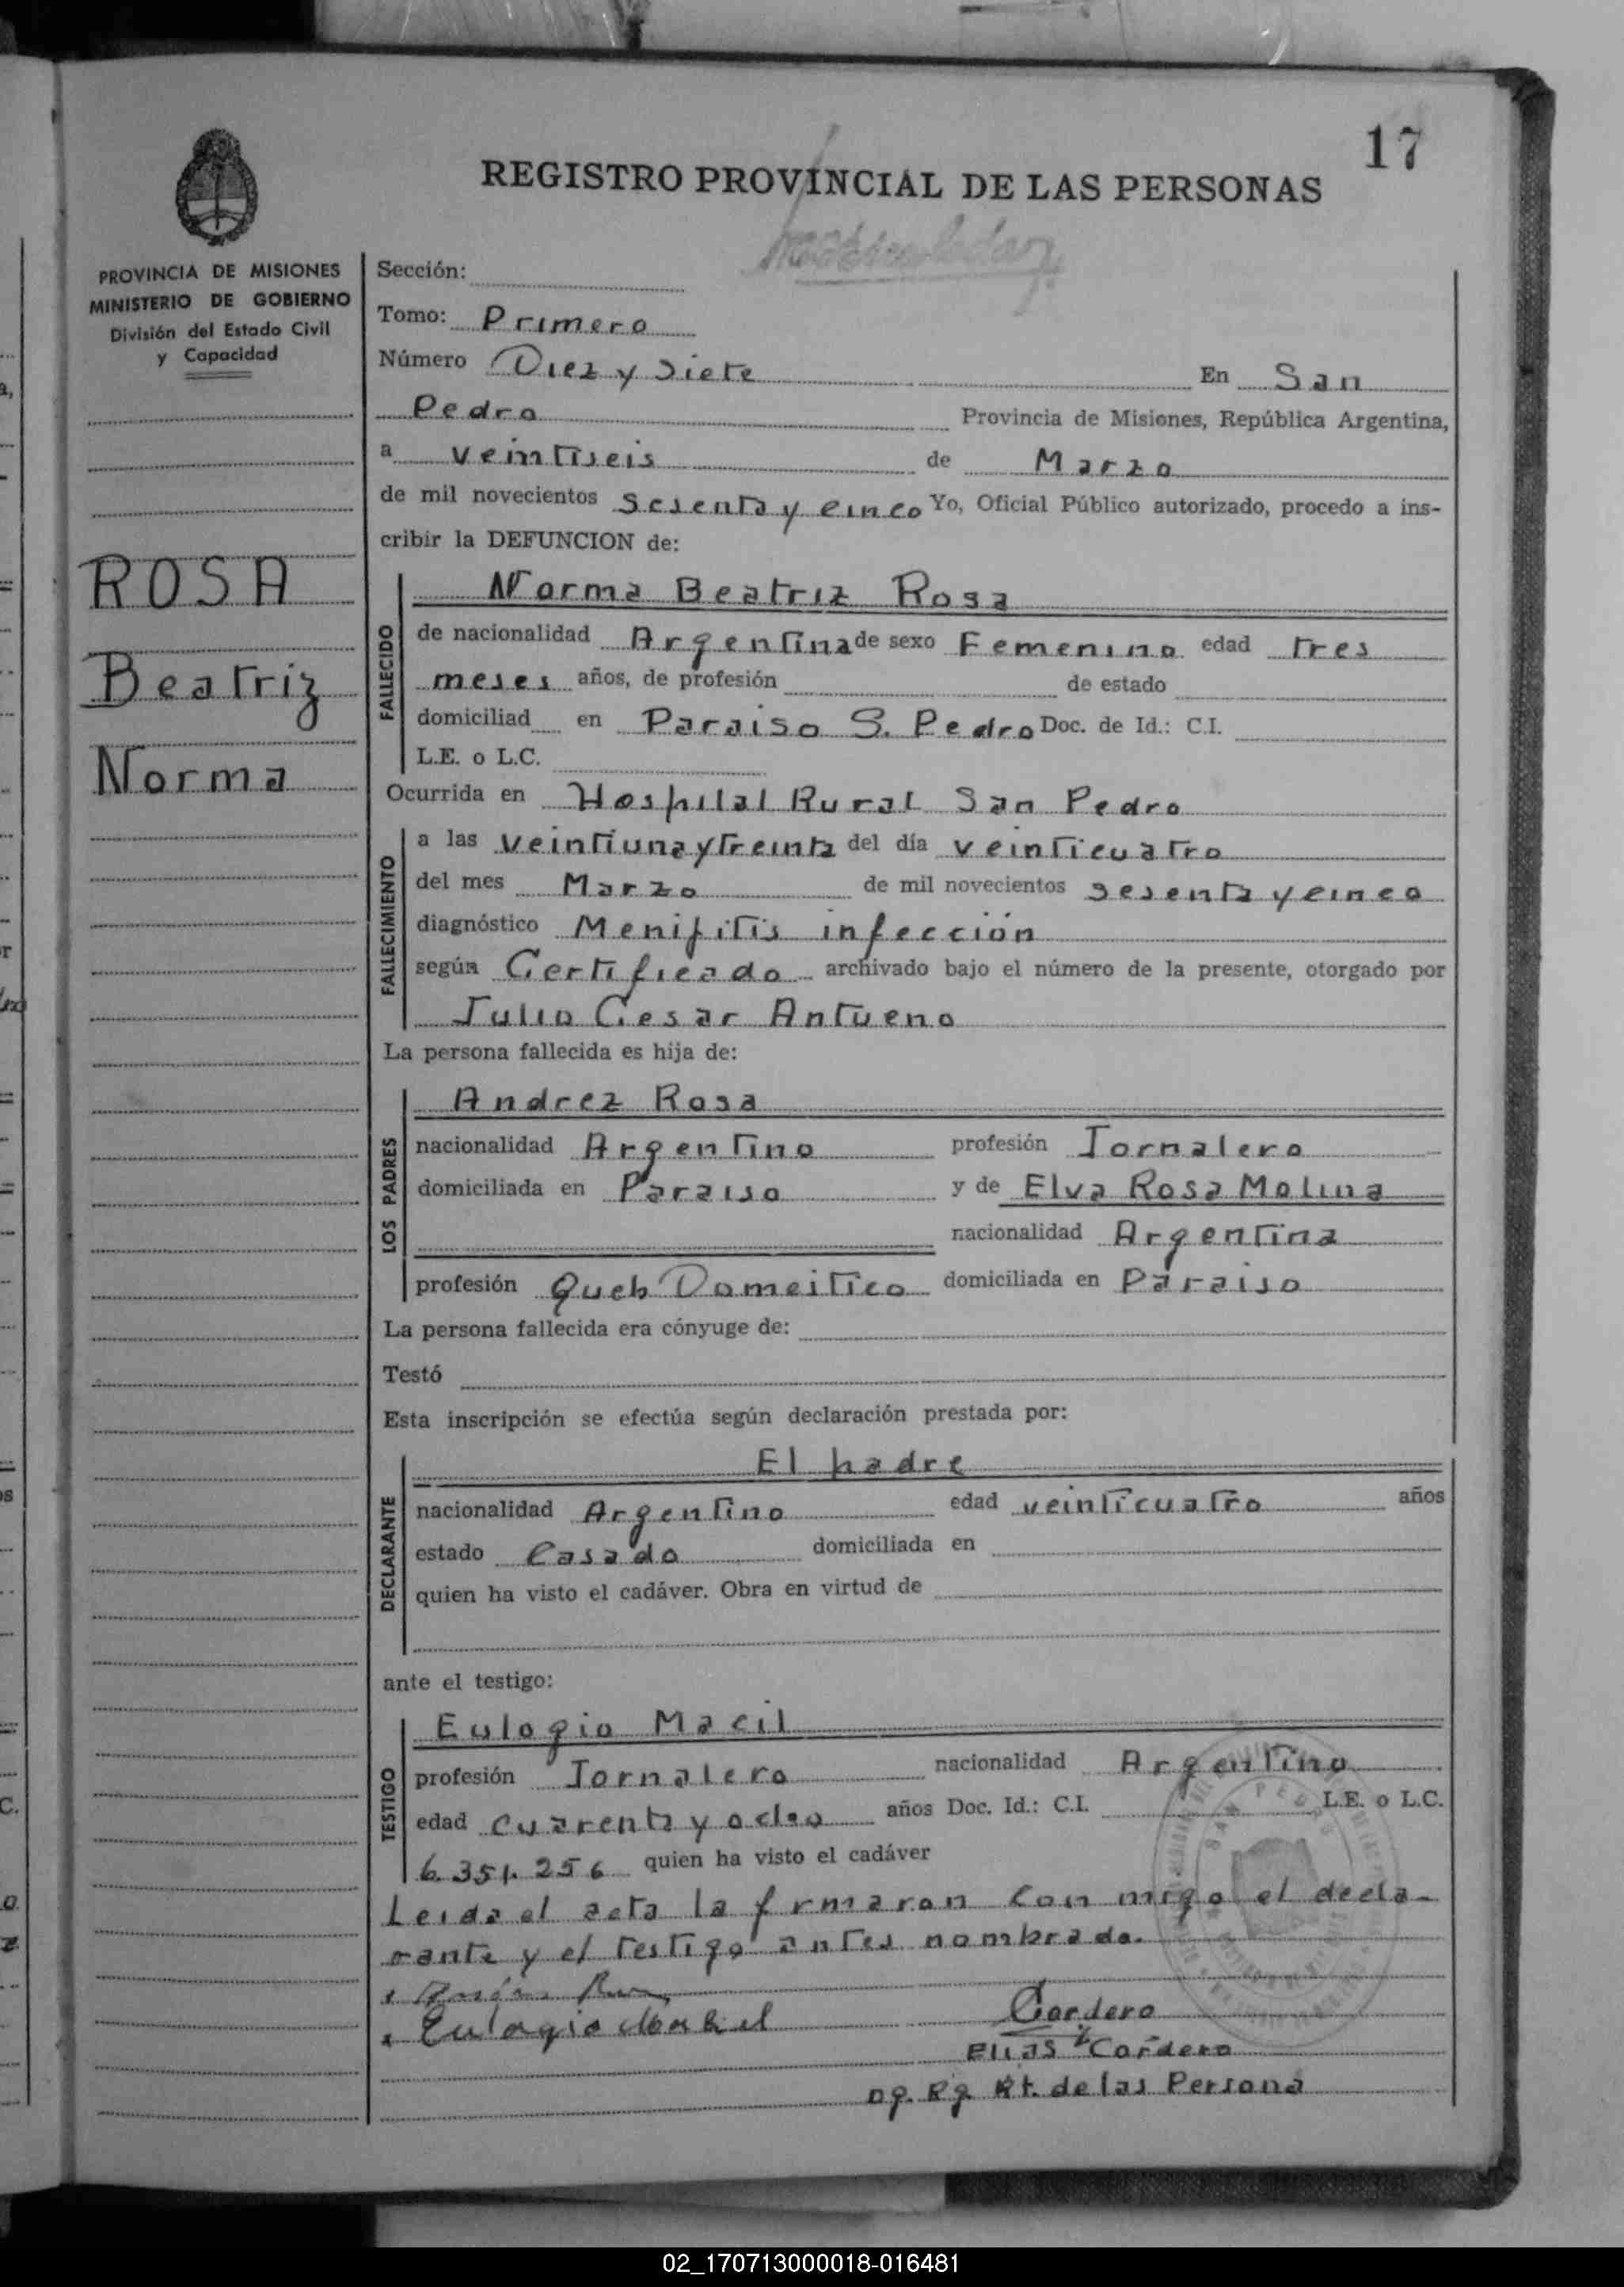 17
REGISTRO PROVINCIAL DE LAS PERSONAS
PROVINCIA DE MISIONES
MINISTERIO DE GOBIERNO
División del Estado Civil
y Capacidad
ROSA
Beatriz
Norma
Sección:
Tomo: Primero
Número Diez y Siete En San
Pedro Provincia de Misiones, República Argentina,
a veintiseis de Marzo
de mil novecientos sesenta y cinco Yo, Oficial Público autorizado, procedo a ins-
cribir la DEFUNCION de:
FALLECIDO
Norma Beatriz Rosa
de nacionalidad Argentina de sexo Femenino edad tres
meses años, de profesión de estado
domiciliad en Paraiso S. Pedro Doc. de Id.: C.I.
L.E. o L.C.
Ocurrida en Hospital Rural San Pedro
FALLECIMIENTO
a las veintiuna y treinta del día veinticuatro
del mes Marzo de mil novecientos sesenta y cinco
diagnóstico infección
según Certificado archivado bajo el número de la presente, otorgado por
Julio Cesar Antueno
La persona fallecida es hija de:
LOS PADRES
Andrez Rosa
nacionalidad Argentino profesión Jornalero
domiciliada en Paraiso y de Elva Rosa Molina
nacionalidad Argentina
profesión Queh Domestico domiciliada en Paraiso
La persona fallecida era cónyuge de:
Testó
Esta inscripción se efectúa según declaración prestada por:
DECLARANTE
El padre
nacionalidad Argentino edad veinticuatro años
estado Casado domiciliada en
quien ha visto el cadáver. Obra en virtud de
ante el testigo:
TESTIGO
Eulogio Macil
profesión Jornalero nacionalidad Argentino
edad cuarenta y ocho años Doc. Id.: C.I. L.E. o L.C.
6.351.256 quien ha visto el cadáver
Leida el acta la firmaron con migo el decla-
rante y el testigo antes nombrado.
Eulogio
Cordero
Elias Cordero
Rt. de las Persona
02_170713000018-016481